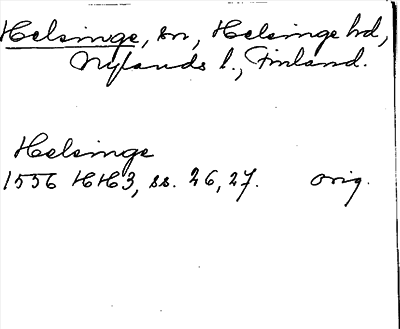 Helsinge, sn, Helsinge hd,
Nylands l., Finland.
Helsinge
1556 HH3, ss. 26, 27. orig.